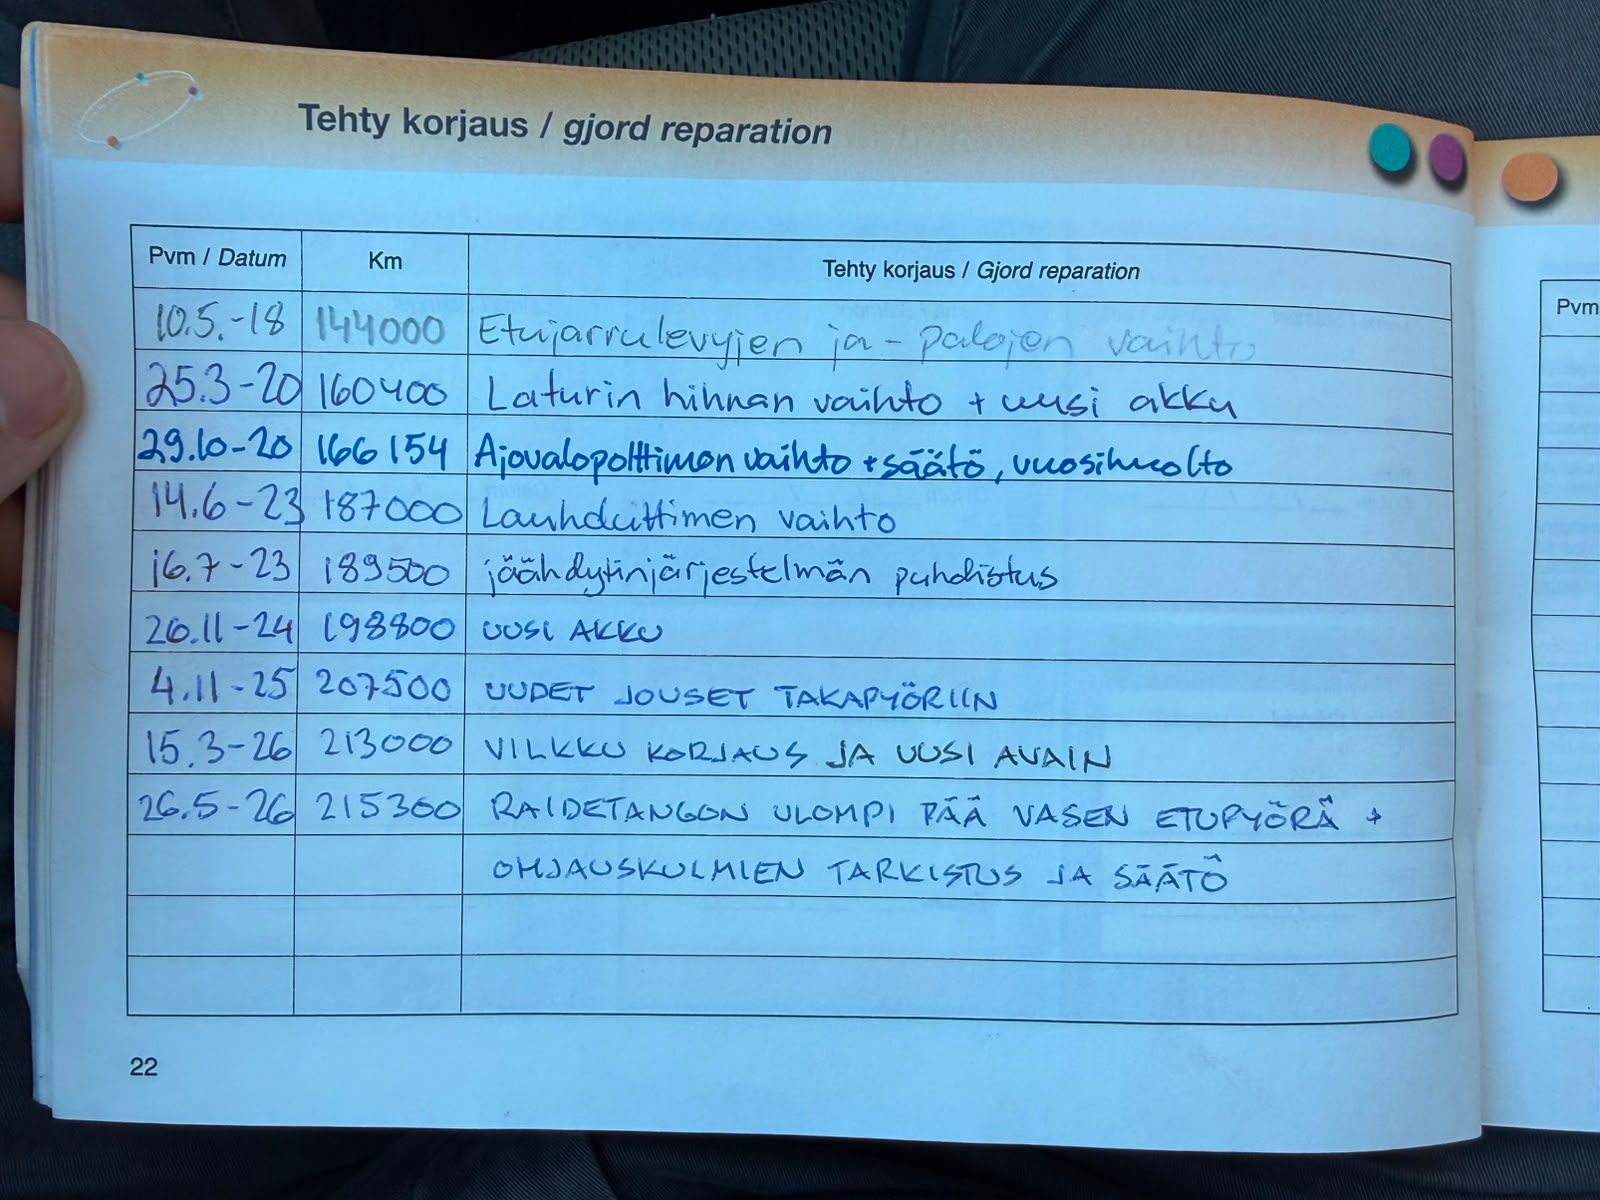 Tehty korjaus / gjord reparation
Pvm / Datum Km Tehty korjaus / Gjord reparation
10.5.-18 144000 Etujarrulevyjen ja -palojen vaihto
25.3-20 160400 Laturin hihnan vaihto + uusi akku
29.10-20 166154 Ajovalopolttimon vaihto + säätö, vuosihuolto
14.6-23 187000 Lauhduttimen vaihto
16.7-23 189500 jäähdytinjärjestelmän puhdistus
26.11-24 198800 UUSI AKKU
4.11-25 207500 UUDET JOUSET TAKAPYÖRIIN
15.3-26 213000 VILKKU KORJAUS JA UUSI AVAIN
26.5-26 215300 RAIDETANGON ULOMPI PÄÄ VASEN ETUPYÖRÄ +
OHJAUSKULMIEN TARKISTUS JA SÄÄTÖ
22
Pvm